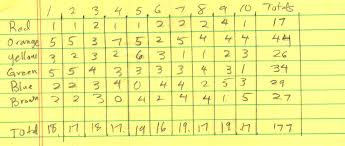 1 2 3 4 5 6 7 8 9 10 Totals
Red 1 1 2 1 1 2 2 2 4 1 17
Orange 5 5 3 7 5 2 5 4 4 4 44
Yellow 3 2 3 2 6 3 1 1 2 3 26
Green 5 5 4 3 3 3 3 4 3 1 34
Blue 2 2 3 4 0 4 4 2 5 3 29
Brown 2 2 3 0 4 2 4 4 1 5 27
Total 18 17 18 17 19 16 19 17 19 17 177